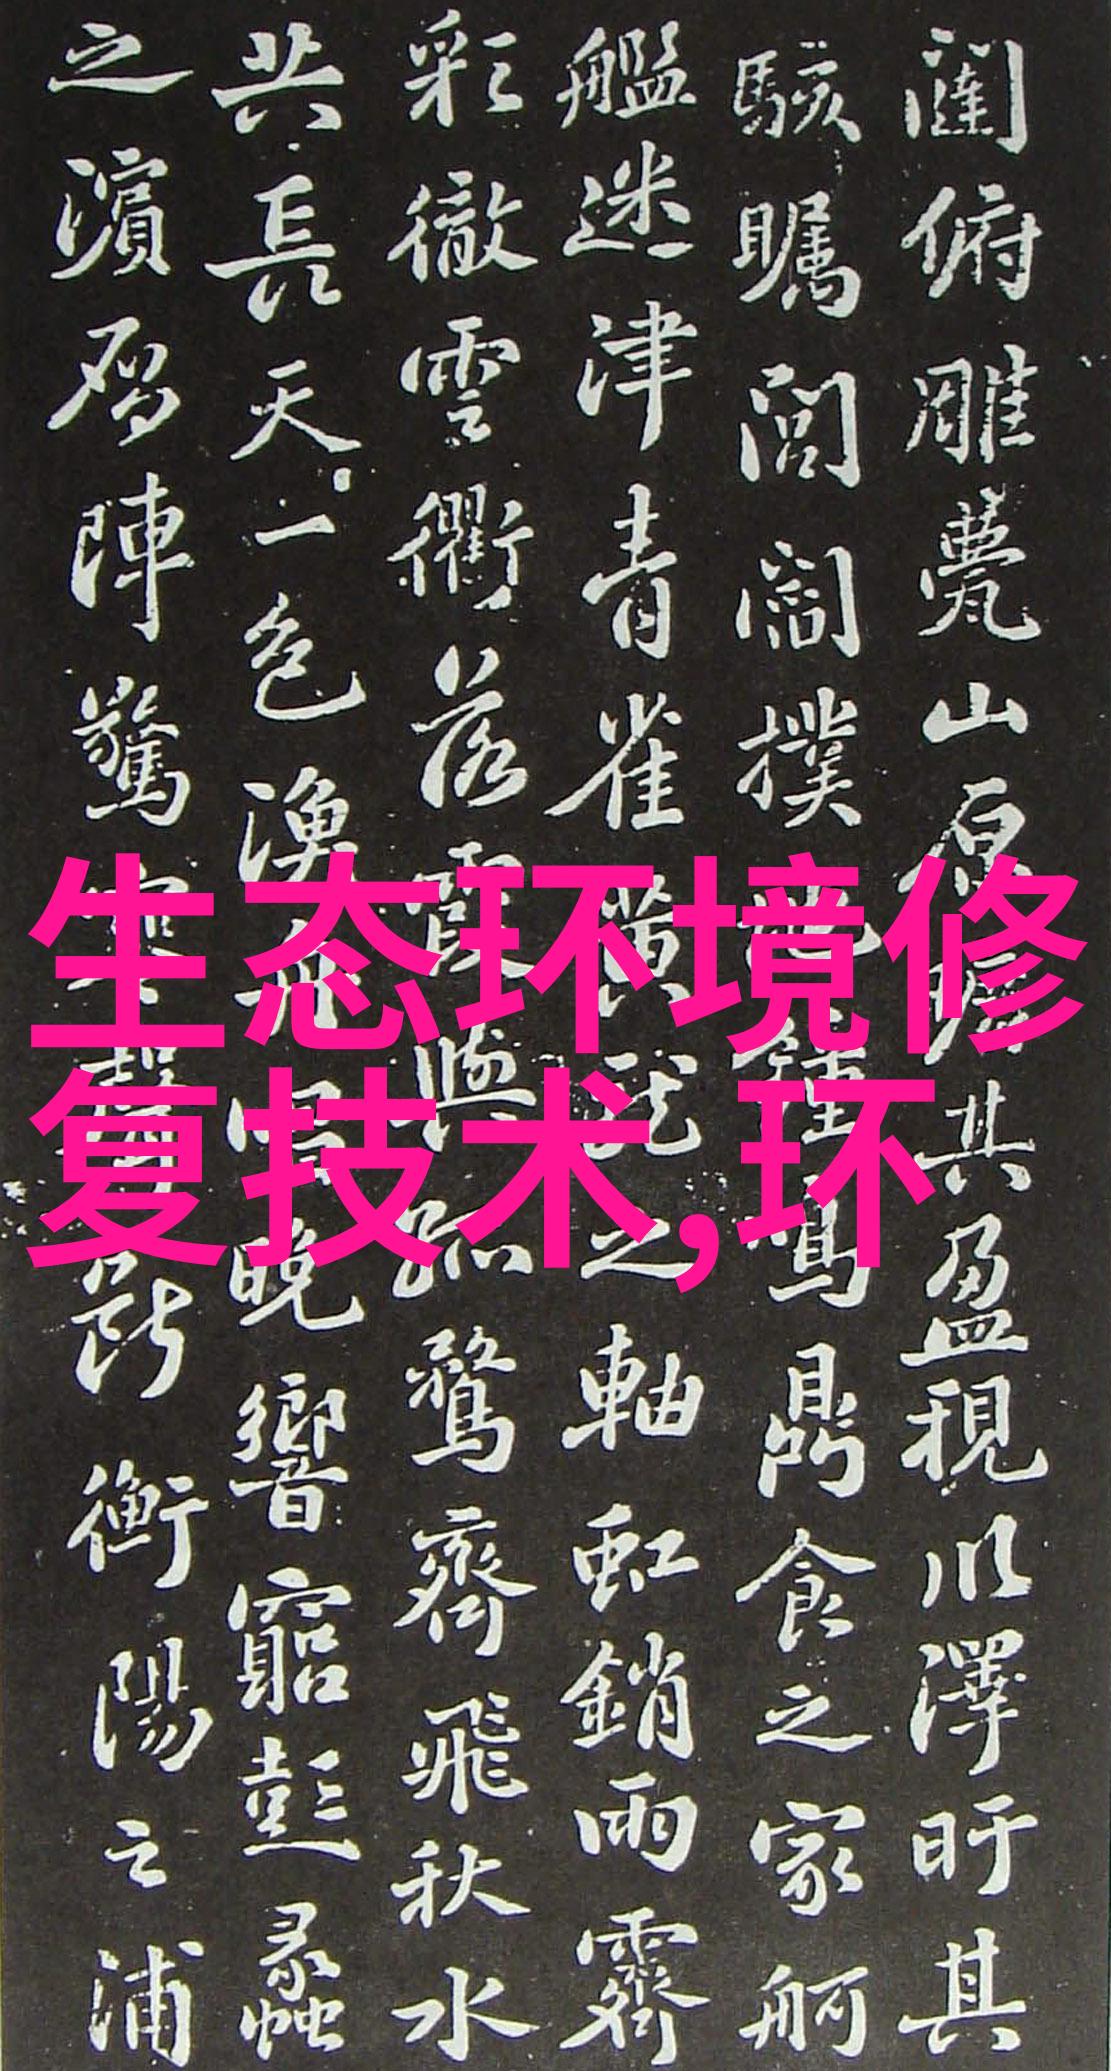 闼俯雕甍山原曠其盈視川澤盱其
駭矚閭閻撲地鍾鳴鼎食之家舸
艦迷津青雀黃龍之軸虹銷雨霽
彩徹雲衢落霞與孤鶩齊飛秋水
共長天一色漁舟唱晚響窮彭蠡
之濱鴈陣驚寒聲斷衡陽之浦
生态环境修
复技术,环